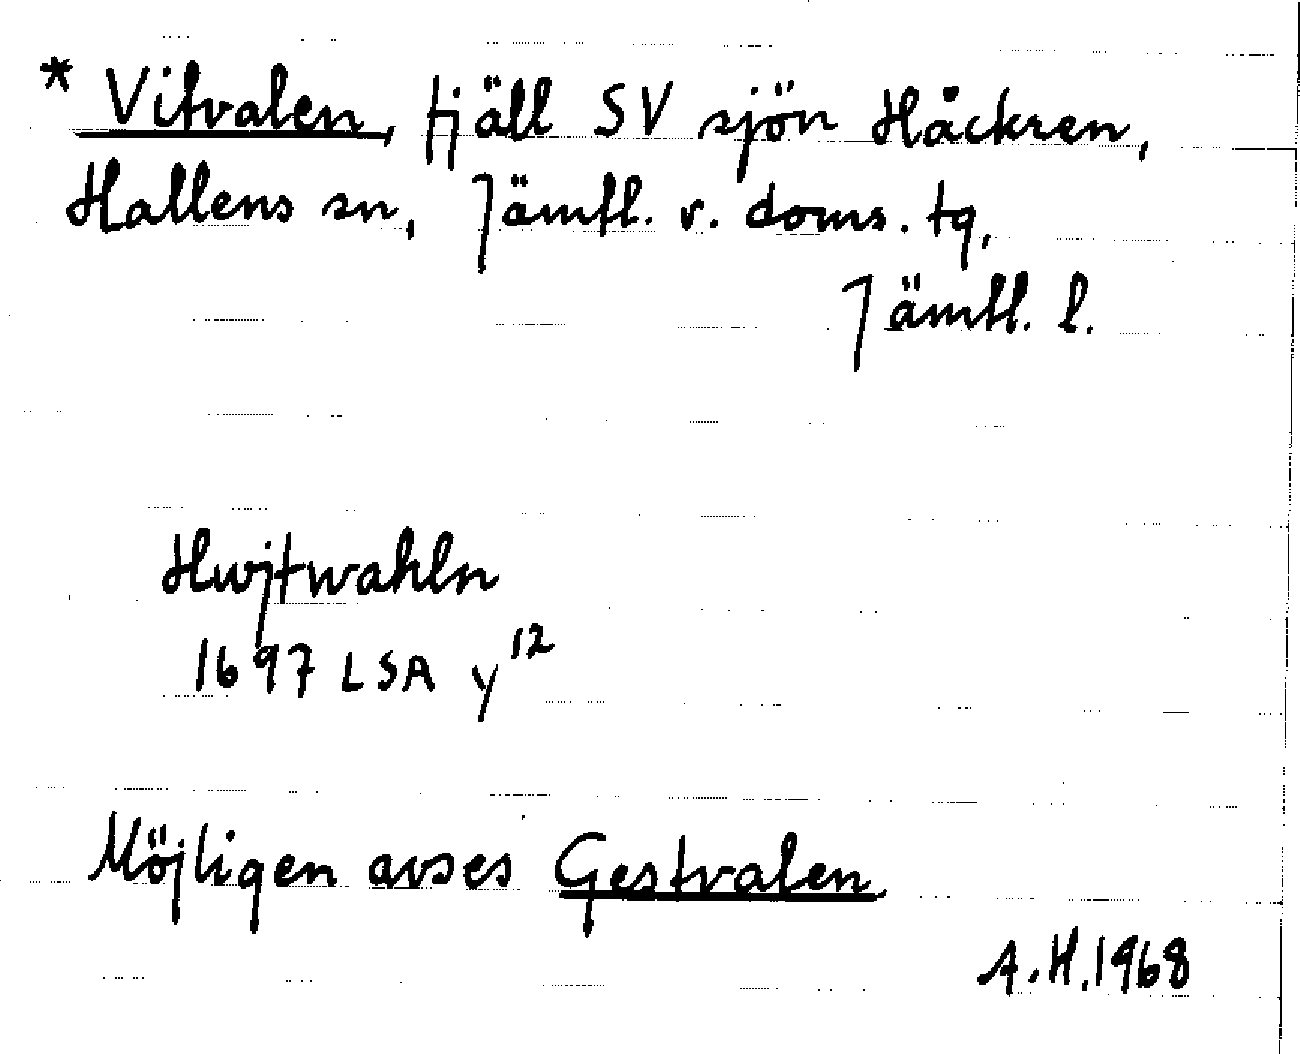 * Vitvalen, fjäll SV sjön Håckren,
Hallens sn, Jämtl. v. doms. tg,
Jämtl. l.
Hwjtwahln
1697 LSA y12
Möjligen avses Gestvalen
A.H. 1968